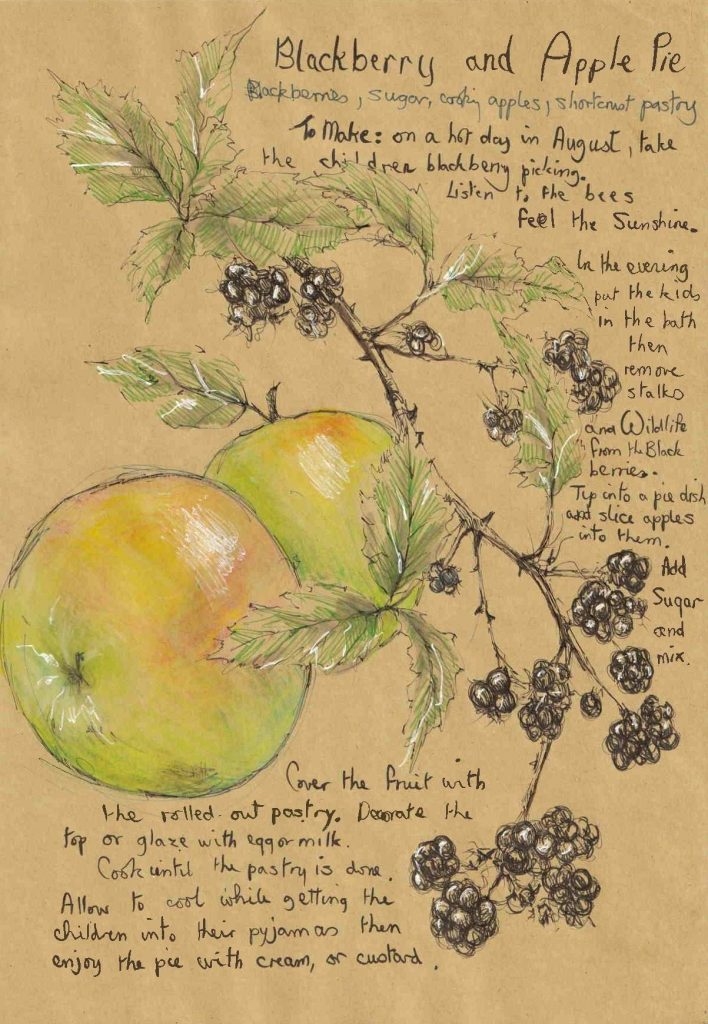 Blackberry and Apple Pie
Blackberries, sugar, cooking apples, shortcrust pastry
To Make: on a hot day in August, take
the children blackberry picking.
Listen to the bees
Feel the Sunshine.
In the evening
put the kids
in the bath
then
remove
stalks
and Wildlife
from the Black
berries.
Tip into a pie dish
and slice apples
into them.
Add
Sugar
and
mix.
Cover the fruit with
the rolled out pastry. Decorate the
top or glaze with egg or milk.
Cook until the pastry is done.
Allow to cool while getting the
children into their pyjamas then
enjoy the pie with cream, or custard.